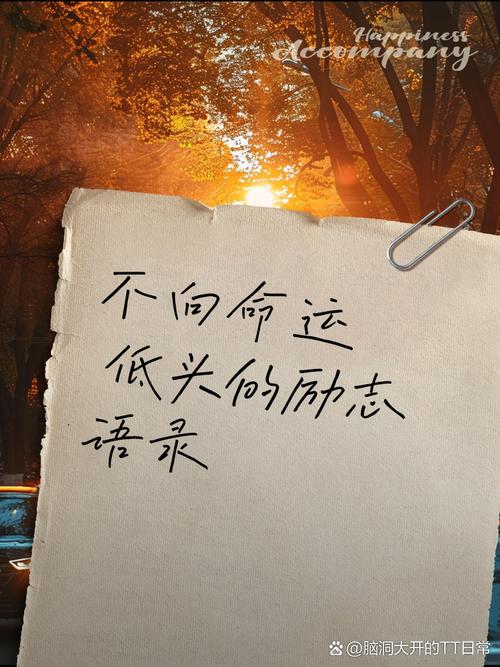 Happiness
Accompany
不向命运
低头的励志
语录
@脑洞大开的TT日常